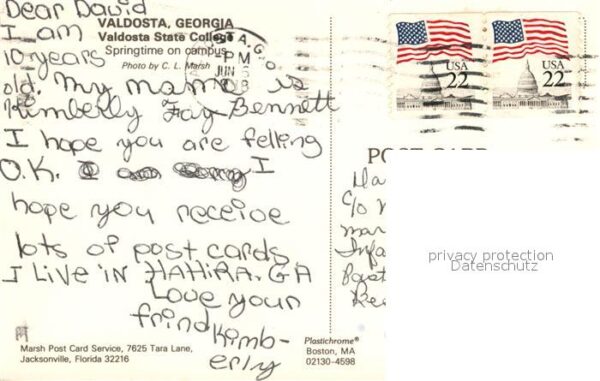 Dear David
VALDOSTA, GEORGIA
I am
Valdosta State College
Springtime on campus
10 years
Photo by C. L. Marsh
old. My mama is
Kimberly Fay Bennett
I hope you are felling
O.K. I
hope you receive
lots of post cards
I LIVE iN HAHiRA, GA
Love your
frind Kimb-
erly
Marsh Post Card Service, 7625 Tara Lane,
Jacksonville, Florida 32216
Plastichrome®
Boston, MA
02130-4598
PM
JUN
USA
22
USA
22
POST CARD
c/o
privacy protection
Datenschutz